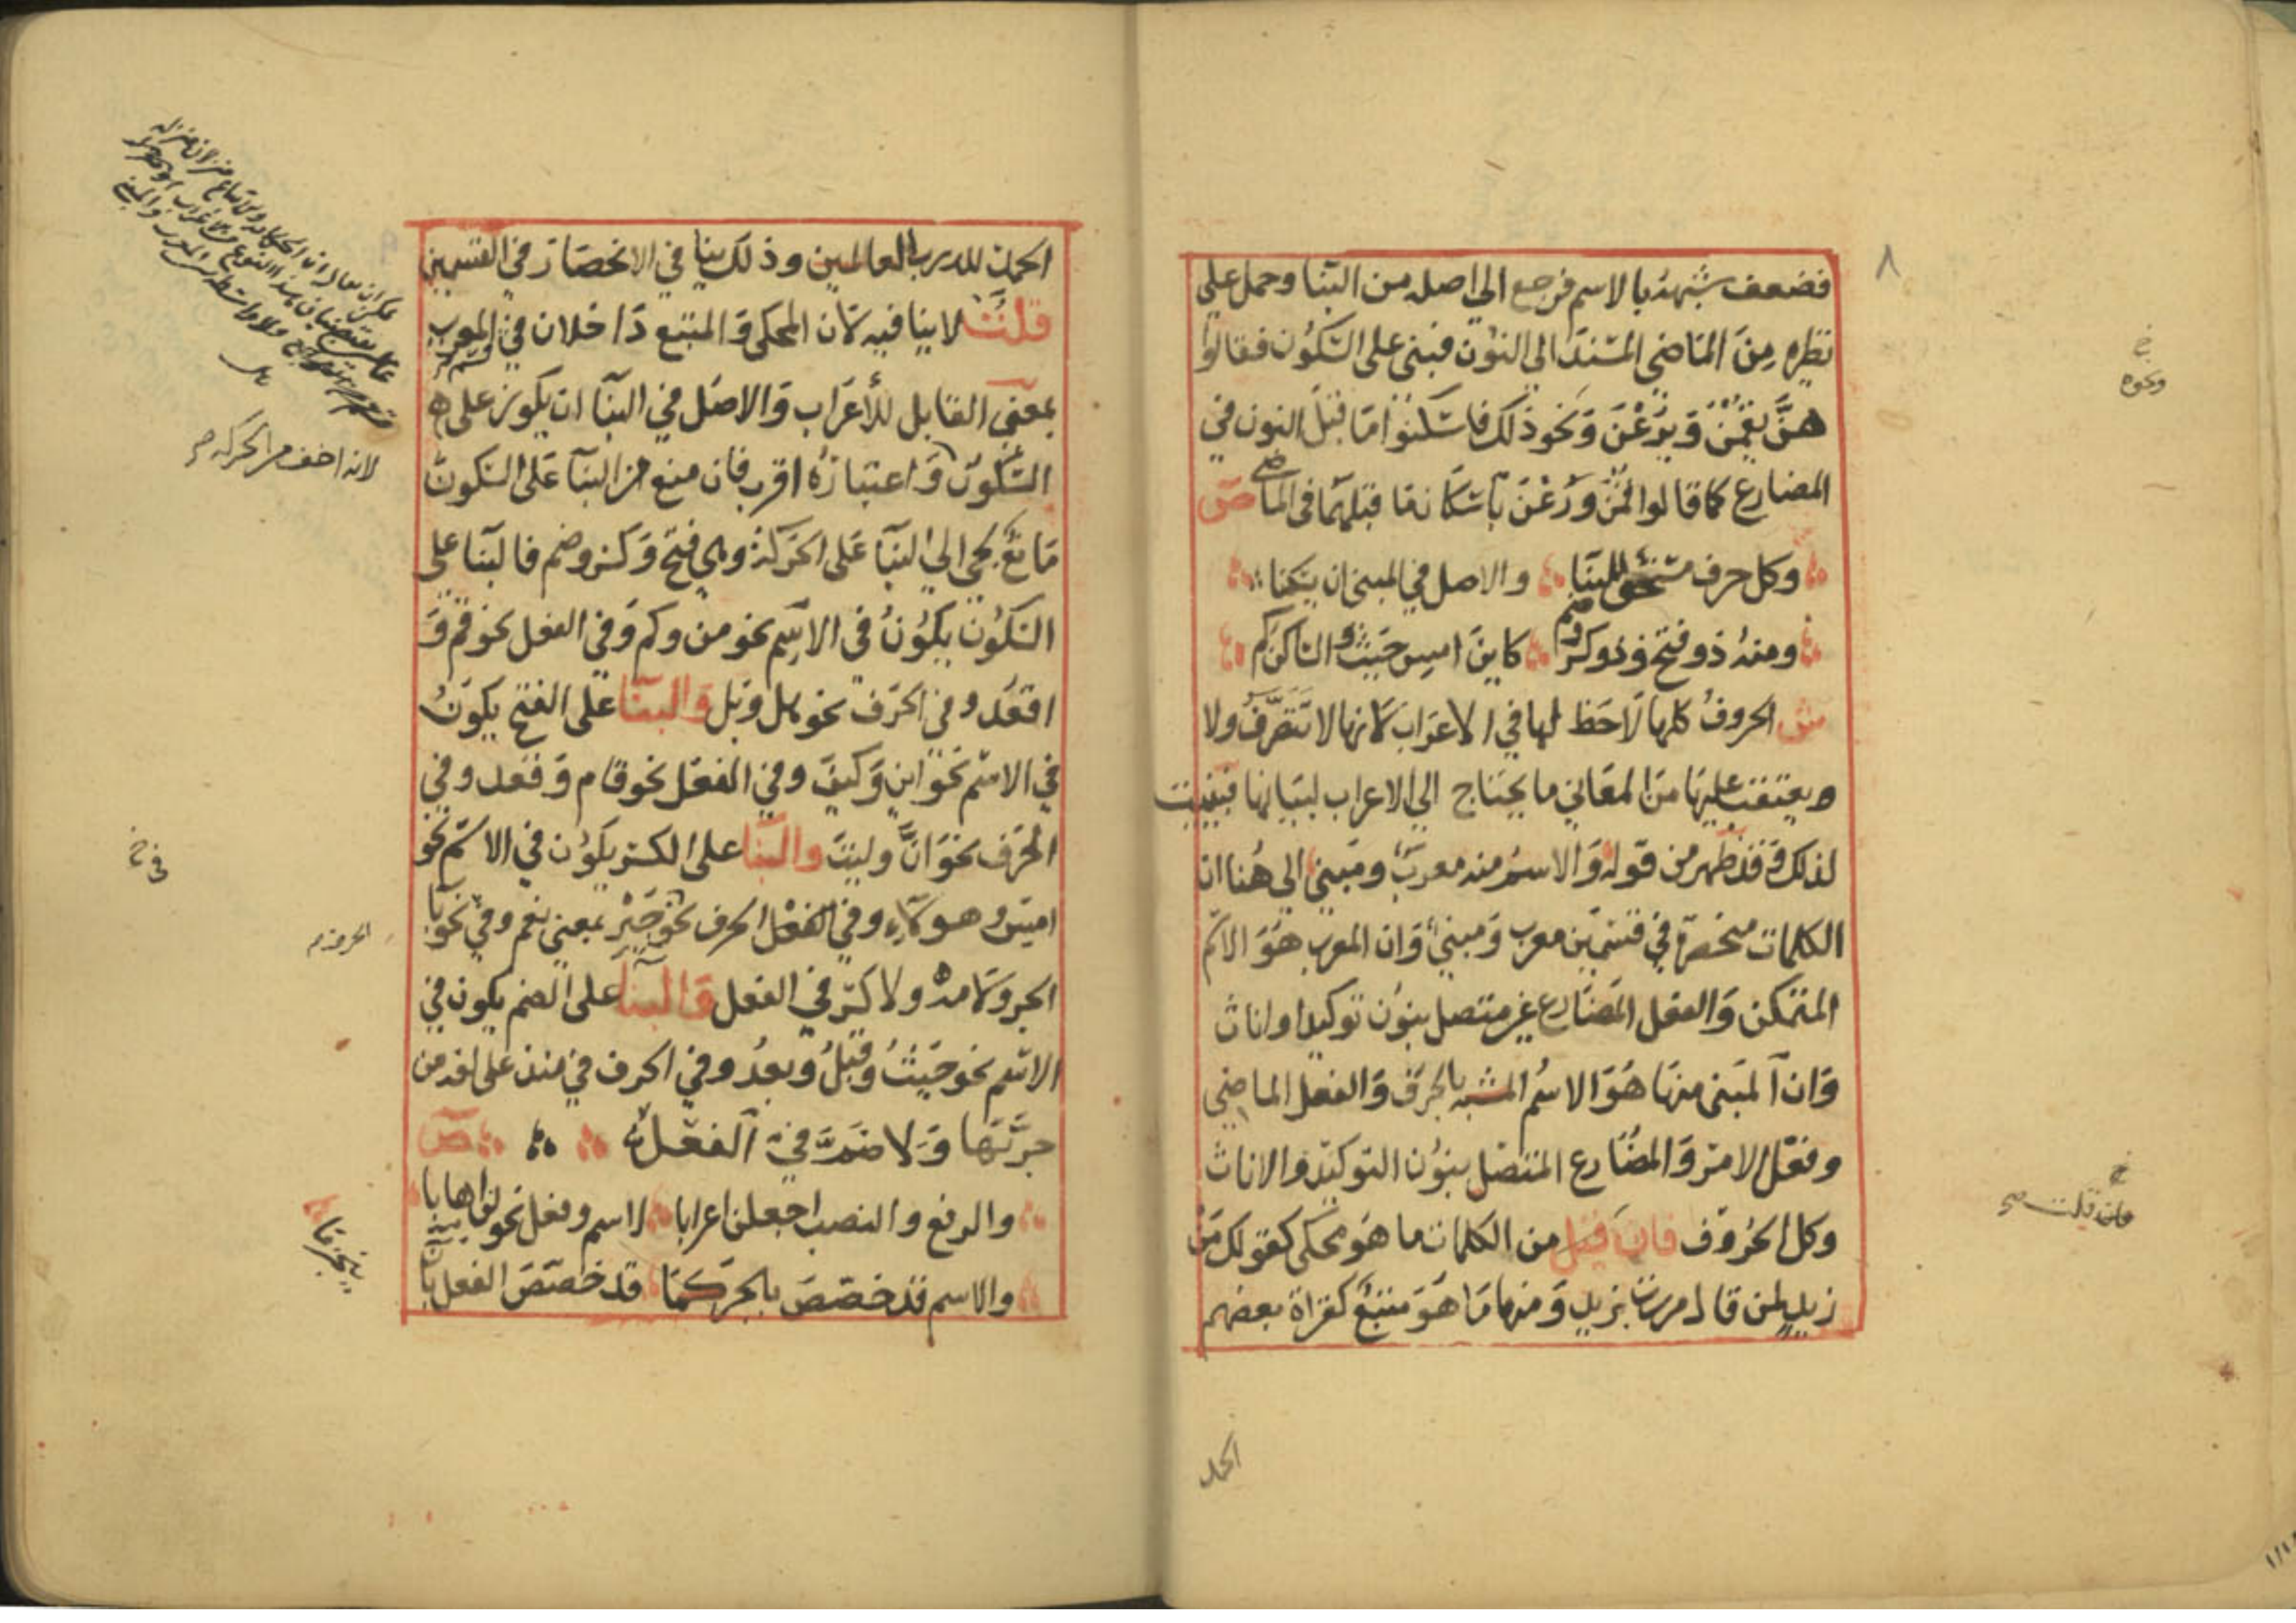 ٨
فضعف شبهه بالاسم فرجع الي اصله من البنا وحمل علي
نظيره من الماضي المسند الى النون فبنى على السكون فقالوا
هن يقمن ويرعن ونحو ذلك فاسكنوا ما قبل النون في
المضارع كما قالوا قمن ورعن باسكان ما قبلها في الماضي ص
وكل حرف مستحق للبنا والاصل في المبنى ان يسكنا
ومنه ذو فتح وذو كسر وضم كاين امس حيث والساكن كم
ش الحروف كلها لا حظ لها في الاعراب لانها لا تتصرف ولا
يعتقب عليها من المعاني ما يحتاج الي الاعراب لبيانها فبنيت
لذلك وقد ظهر من قوله والاسم منه معرب ومبني الى هنا ان
الكلمات منحصرة في قسمين معرب ومبني وان المعرب هو الاسم
المتمكن والفعل المضارع غير متصل بنون توكيد او اناث
وان المبنى منها هو الاسم المشبه بالحرف والفعل الماضي
وفعل الامر والمضارع المتصل بنون التوكيد والاناث
وكل الحروف فان قيل من الكلمات ما هو محكى كقولك من
زيد لمن قال مررت بزيد ومنها ما هو متبع كقراة بعضهم
الحمد
ونحوه
فان قلت صح
الحمد لله رب العالمين وذلك ينافي الانحصار في القسمين
قلت لا ينافيه لان المحكى والمتبع داخلان في المعرب
بمعنى القابل للأعراب والاصل في البنا ان يكون على
السكون واعتباره اقرب فان منع من البنا على السكون
مانع لجى الي البنا على الحركة وهي فتح وكسر وضم فالبنا على
السكون يكون في الاسم نحو من وكم وفي الفعل نحو قم و
اقعد وفي الحرف نحو هل وبل والبنا على الفتح يكون
في الاسم نحو اين وكيف وفي الفعل نحو قام وقعد وفي
الحرف نحو ان وليت والبنا على الكسر يكون في الاسم نحو
امس وهولاء وفي الفعل الحرف نحو جير بمعنى نعم وفي نحو با
الجر ولامه ولا كسر في الفعل والبنا على الضم يكون في
الاسم نحو حيث وقبل وبعد وفي الحرف في منذ على لغة من
جر بها ولا ضم في الفعل ص
والرفع والنصب اجعلن اعرابا لاسم وفعل نحو لن اهابا
والاسم قد خصص بالجر كما قد خصص الفعل بان
ينجزما
لانه اخف من الحركة صح
في خ
الحرف